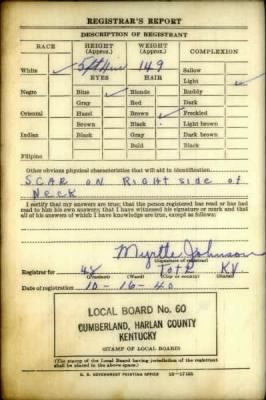 REGISTRAR'S REPORT
DESCRIPTION OF REGISTRANT
RACE HEIGHT (Approx.) WEIGHT (Approx.) COMPLEXION
White ✓ 149 Sallow
EYES HAIR Light ✓
Negro Blue ✓ Blonde Ruddy
Gray Red Dark
Oriental Hazel Brown ✓ Freckled
Brown Black Light brown
Indian Black Gray Dark brown
Bald Black
Filipino
Other obvious physical characteristics that will aid in identification
SCAR ON RIGHT SIDE OF
NECK
I certify that my answers are true; that the person registered has read or has had
read to him his own answers; that I have witnessed his signature or mark and that
all of his answers of which I have knowledge are true, except as follows:
Myrtle Johnson
(Signature of registrar)
Registrar for 48 KY.
(Precinct) (Ward) (City or county) (State)
Date of registration 10-16-40
LOCAL BOARD NO. 60
CUMBERLAND, HARLAN COUNTY
KENTUCKY
(STAMP OF LOCAL BOARD)
(The stamp of the Local Board having jurisdiction of the registrant
shall be placed in the above space.)
U. S. GOVERNMENT PRINTING OFFICE